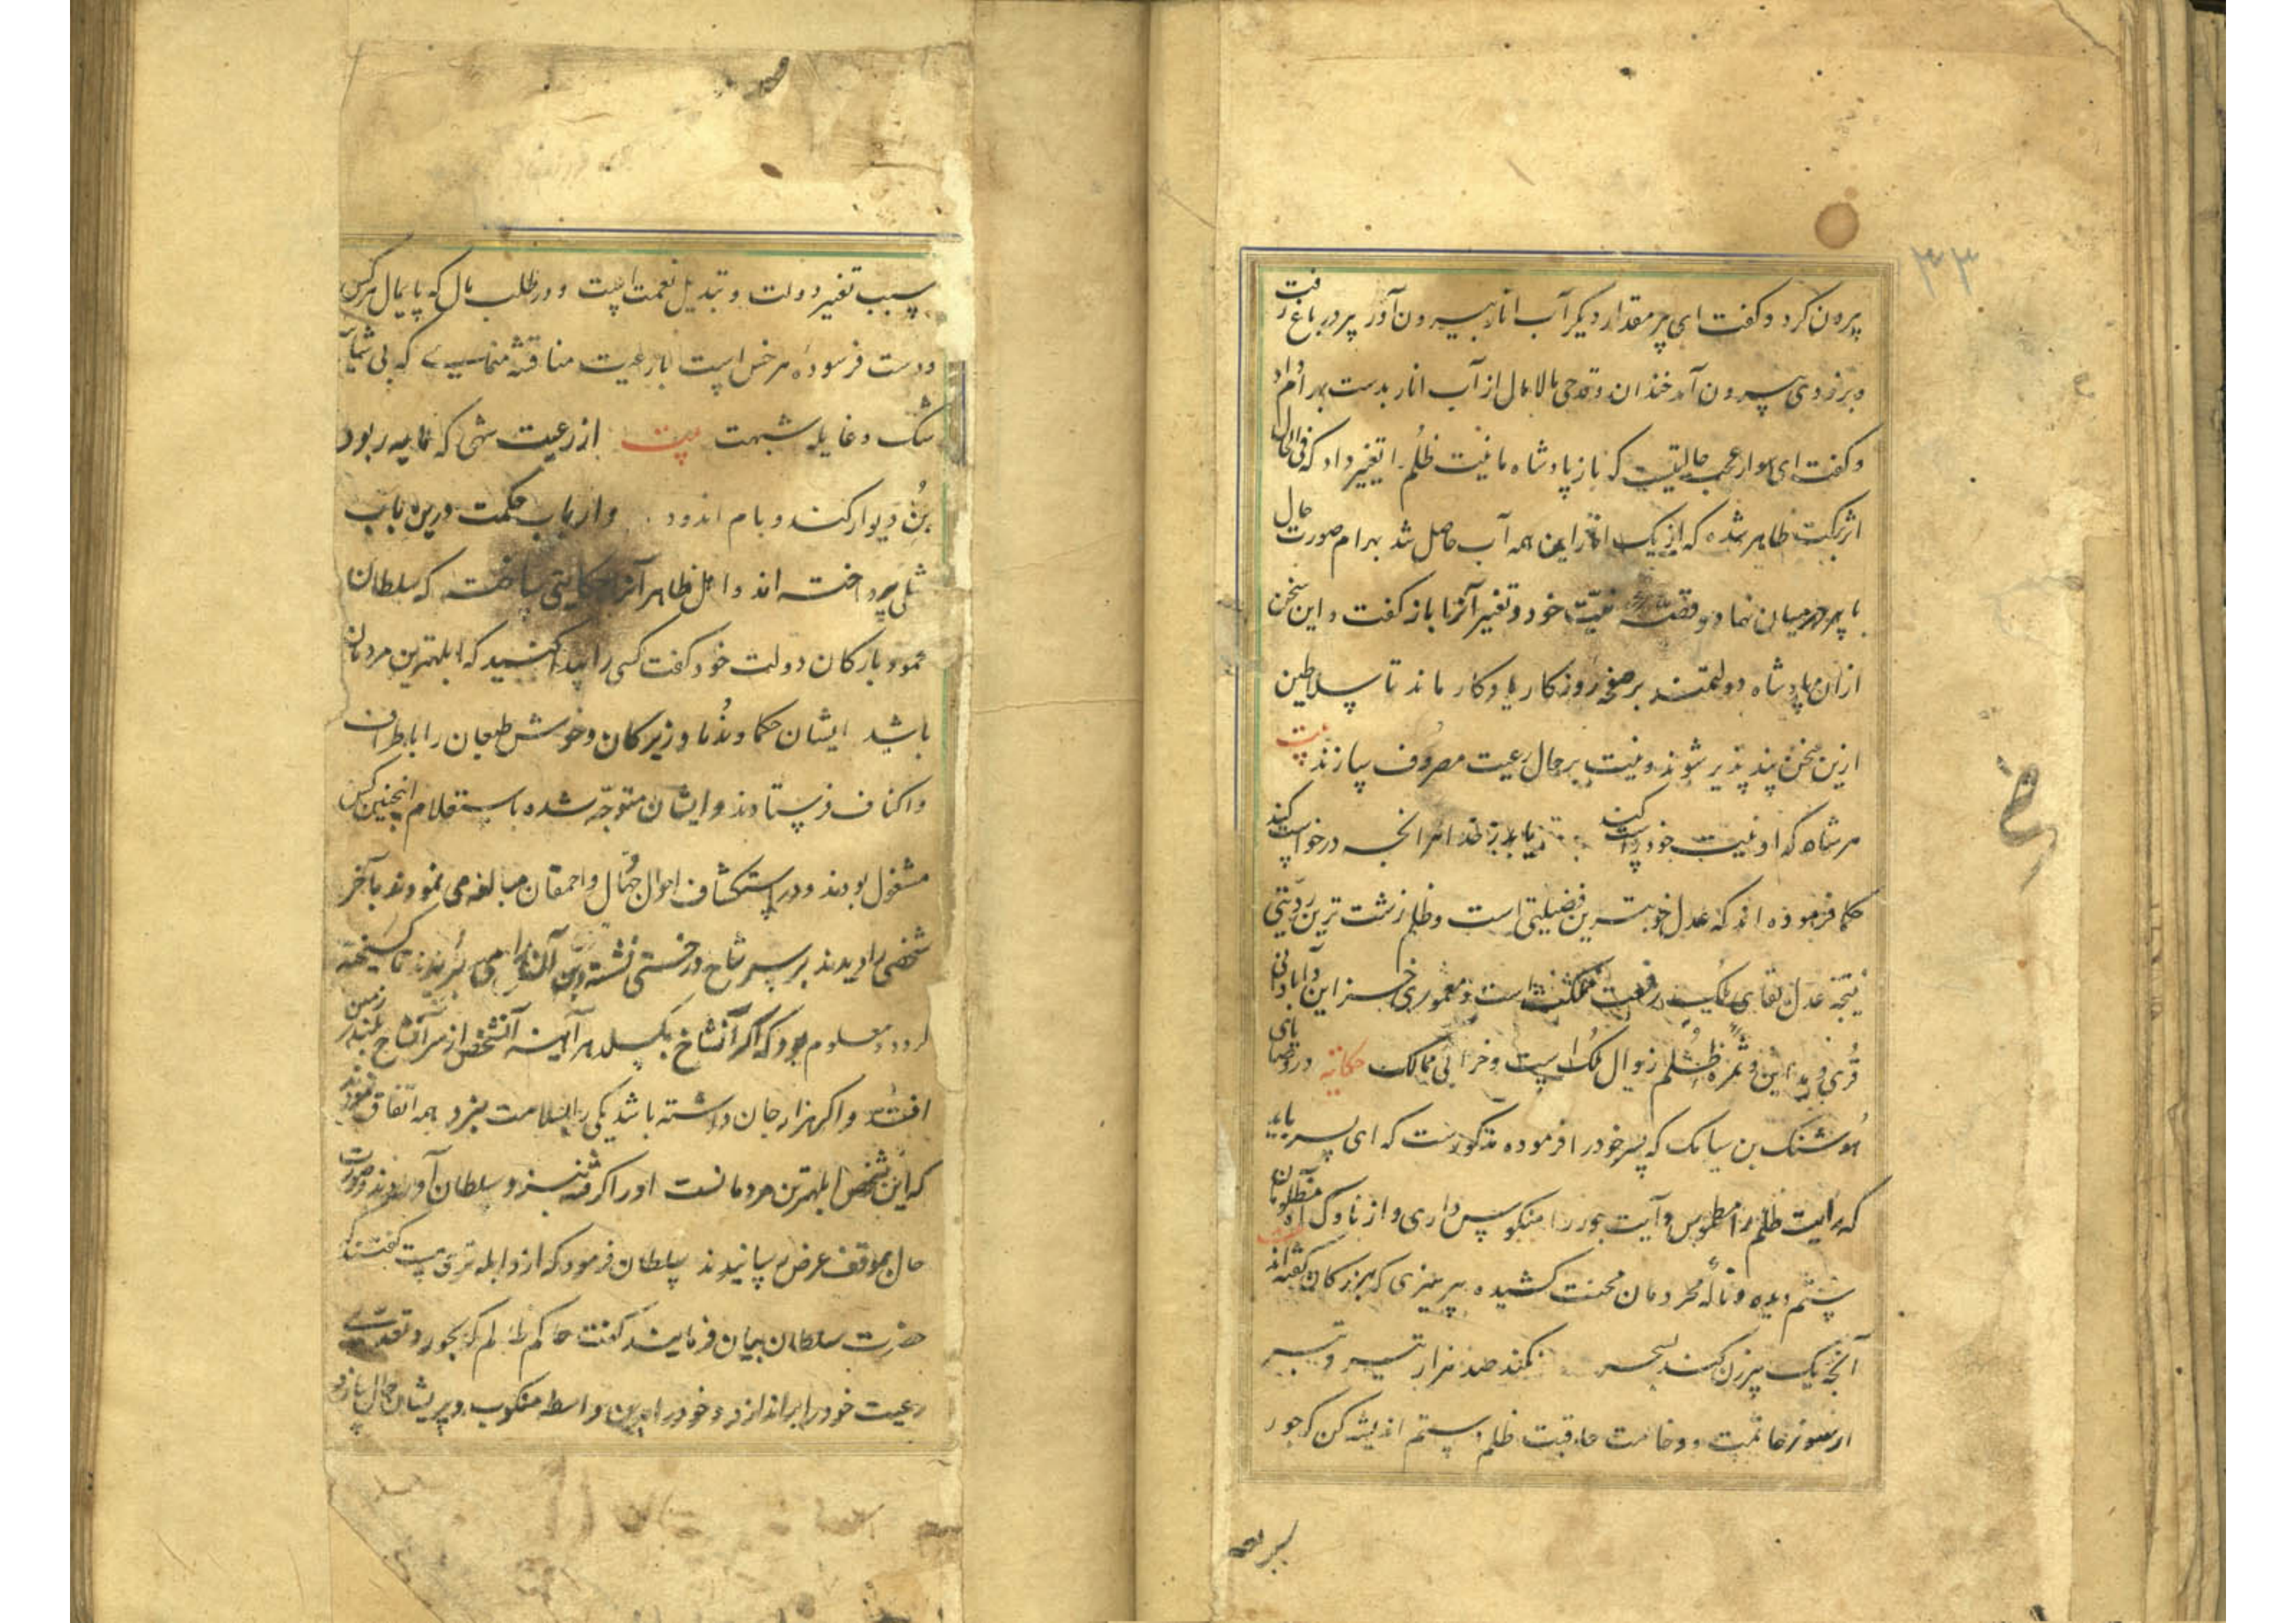 ۳۳
بیرون کرد و کفت ای پسر مقدار دیکر آب انار بیرون آور پسر در باغ رفت
و بر زودی بیرون آمد خندان و قدحی مالامال از آب انار بدست بهرام داد
و کفت ای سوار عجب حالیتیست که باز پادشاه ما نیت ظلم را تغییر داد که فی الحال
اثر برکت ظاهر شده که از یک انار این همه آب حاصل شد بهرام صورت حال
با پیر در میان نهاد و قصّه نیّت خود و تغیر آنرا باز کفت و این سخن
از ان پادشاه دولتمند بر صفحه روزکار یادکار ماند تا سلاطین
ازین سخن پند پذیر شوند و نیت بر حال رعیت مصروف سازند بیت
هر شاه که او نیت خود راست کند یابد ز خدا هر انچه درخواست کند
حکما فرموده اند که عدل خوبترین فضیلتی است و ظلم زشت ترین رذیلتی
نتیجه عدل بقای ملک و رفعت مملکت است و معموری خزاین و آبادانی
قری و مداین و ثمره ظلم زوال ملک است و خرابی ممالک حکایة در وصایای
هوشنک بن سیامک که پسر خود را فرموده مذکورست که ای پسر باید
که رایت ظلم را مطموس و آیت جور را منکوس داری و از ناوک آه مظلومان
ستم دیده و ناله محرومان محنت کشیده بپرهیزی که بزرکان کفته اند
آنچه یک پیرزن کند بسحر نکند صد هزار تیر و تبر
از سوء خاتمت و وخامت عاقبت ظلم و ستم اندیشه کن که جور
سبب تغییر دولت و تبدیل نعمت است و در طلب مال که پایمال هر کس
و دست فرسوده هر خس است با رعیت مناقشه منمای که بی شایبه
شک و غایله شبهت بیت از رعیت شهی که مایه ربود
بُن دیوار کند و بام اندود و ارباب حکمت درین باب
مثلی پرداخته اند و اهل ظاهر آنرا حکایتی ساخته که سلطان
محمود بارکان دولت خود کفت کسی را پیدا کنید که ابلهترین مردمان
باشد ایشان حکما و ندما و زیرکان و خوش طبعان را باطراف
و اکناف فرستادند و ایشان متوجّه شده باستعلام اینچنین کس
مشغول بودند و در استکشاف احوال جهّال و احمقان مبالغه می نمودند بآخر
شخصی را دیدند بر سر شاخ درختی نشسته و بن آنرا می برید تا کسیخته
کردد و معلوم بود که اکر آنشاخ بکسلد هر آینه آنشخص از سر آنشاخ بلند بر زمین
افتد و اکر هزار جان داشته باشد یکی را بسلامت نبرد همه اتّفاق نمودند
که این شخص ابلهترین مردمانست او را کرفته نزد سلطان آوردند و صورت
حال بموقف عرض رسانیدند سلطان فرمود که ازو ابله تری هست کفتند که
حضرت سلطان بیان فرمایند کفت حاکم ظالم که بجور و تعدی
رعیت خود را براندازد و خود را بدین واسطه منکوب و پریشان حال سازد